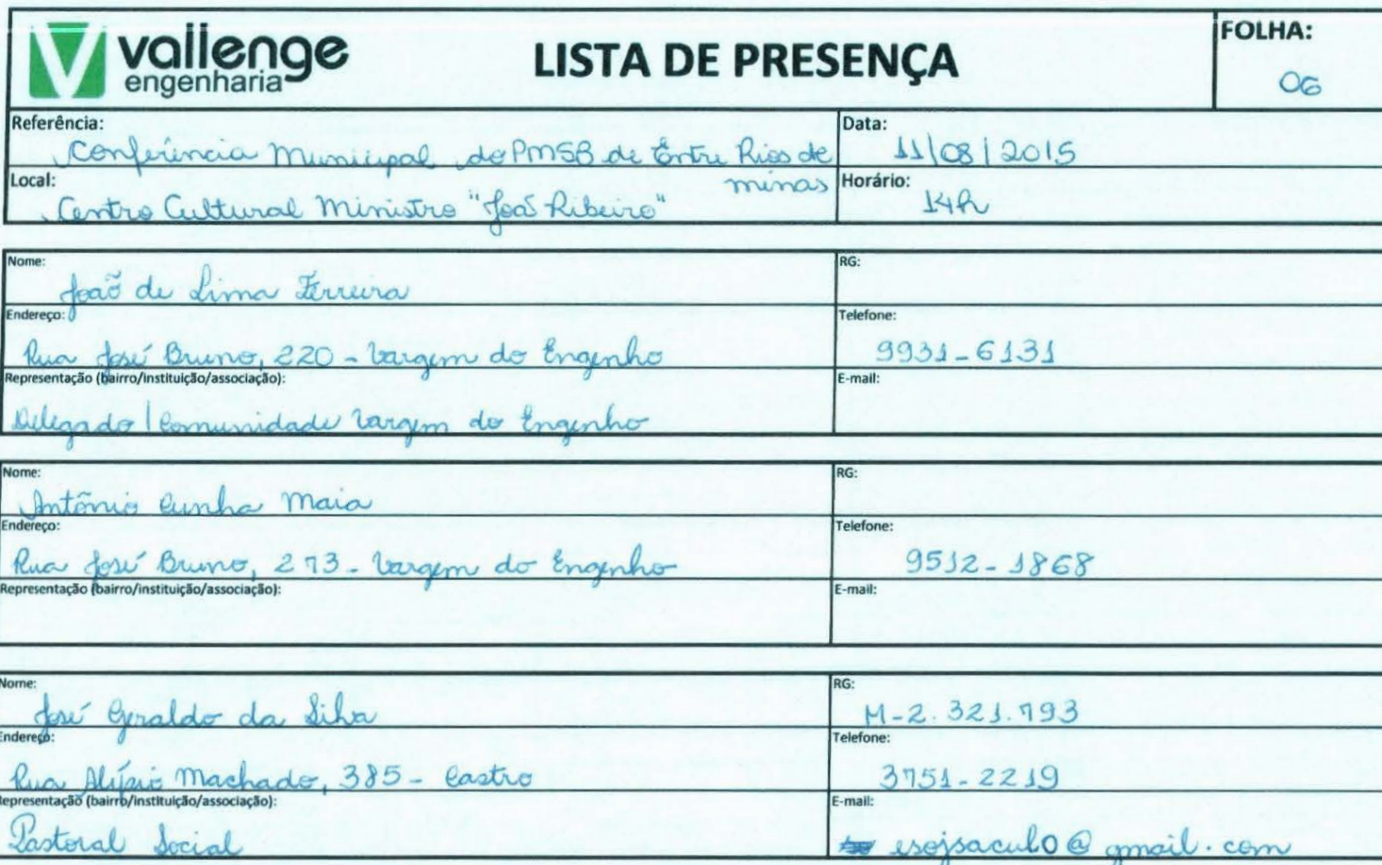 vallenge
engenharia
LISTA DE PRESENÇA
FOLHA:
06
Referência:
Conferência Municipal do PMSB de Entre Rios de
minas
Data:
11/08/2015
Local:
Centro Cultural Ministro "João Ribeiro"
Horário:
14h
Nome:
João de Lima Ferreira
RG:
Endereço:
Rua José Bruno, 220 - Vargem do Engenho
Telefone:
9931-6131
Representação (bairro/instituição/associação):
Delegado | Comunidade Vargem do Engenho
E-mail:
Nome:
Antônio Cunha Maia
RG:
Endereço:
Rua José Bruno, 273 - Vargem do Engenho
Telefone:
9512-1868
Representação (bairro/instituição/associação):
E-mail:
Nome:
José Geraldo da Silva
RG:
M-2.321.793
Endereço:
Rua Alípio Machado, 385 - Castro
Telefone:
3751-2219
Representação (bairro/instituição/associação):
Pastoral Social
E-mail:
esojsacul0@gmail.com